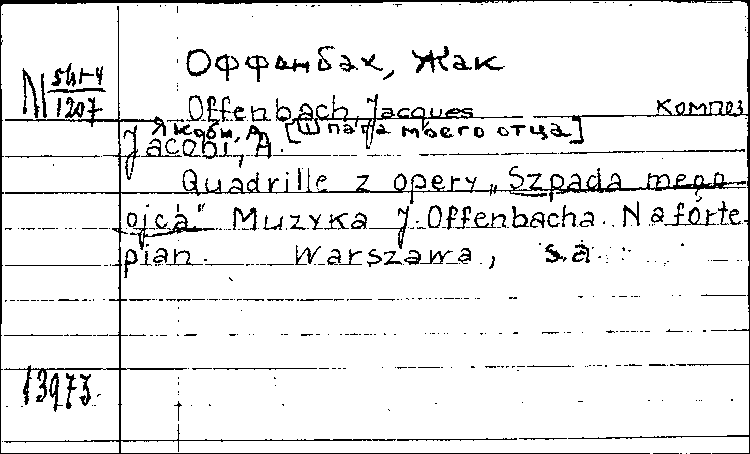 Оффенбах, Жак
N 5hr-4
1207
Offenbach, Jacques
композ
Якоби, А. [Шпага моего отца]
Jacobi, A.
Quadrille z opery „Szpada mego
ojca" Muzyka J. Offenbacha. Na forte
pian. Warszawa, s.a.
13973.